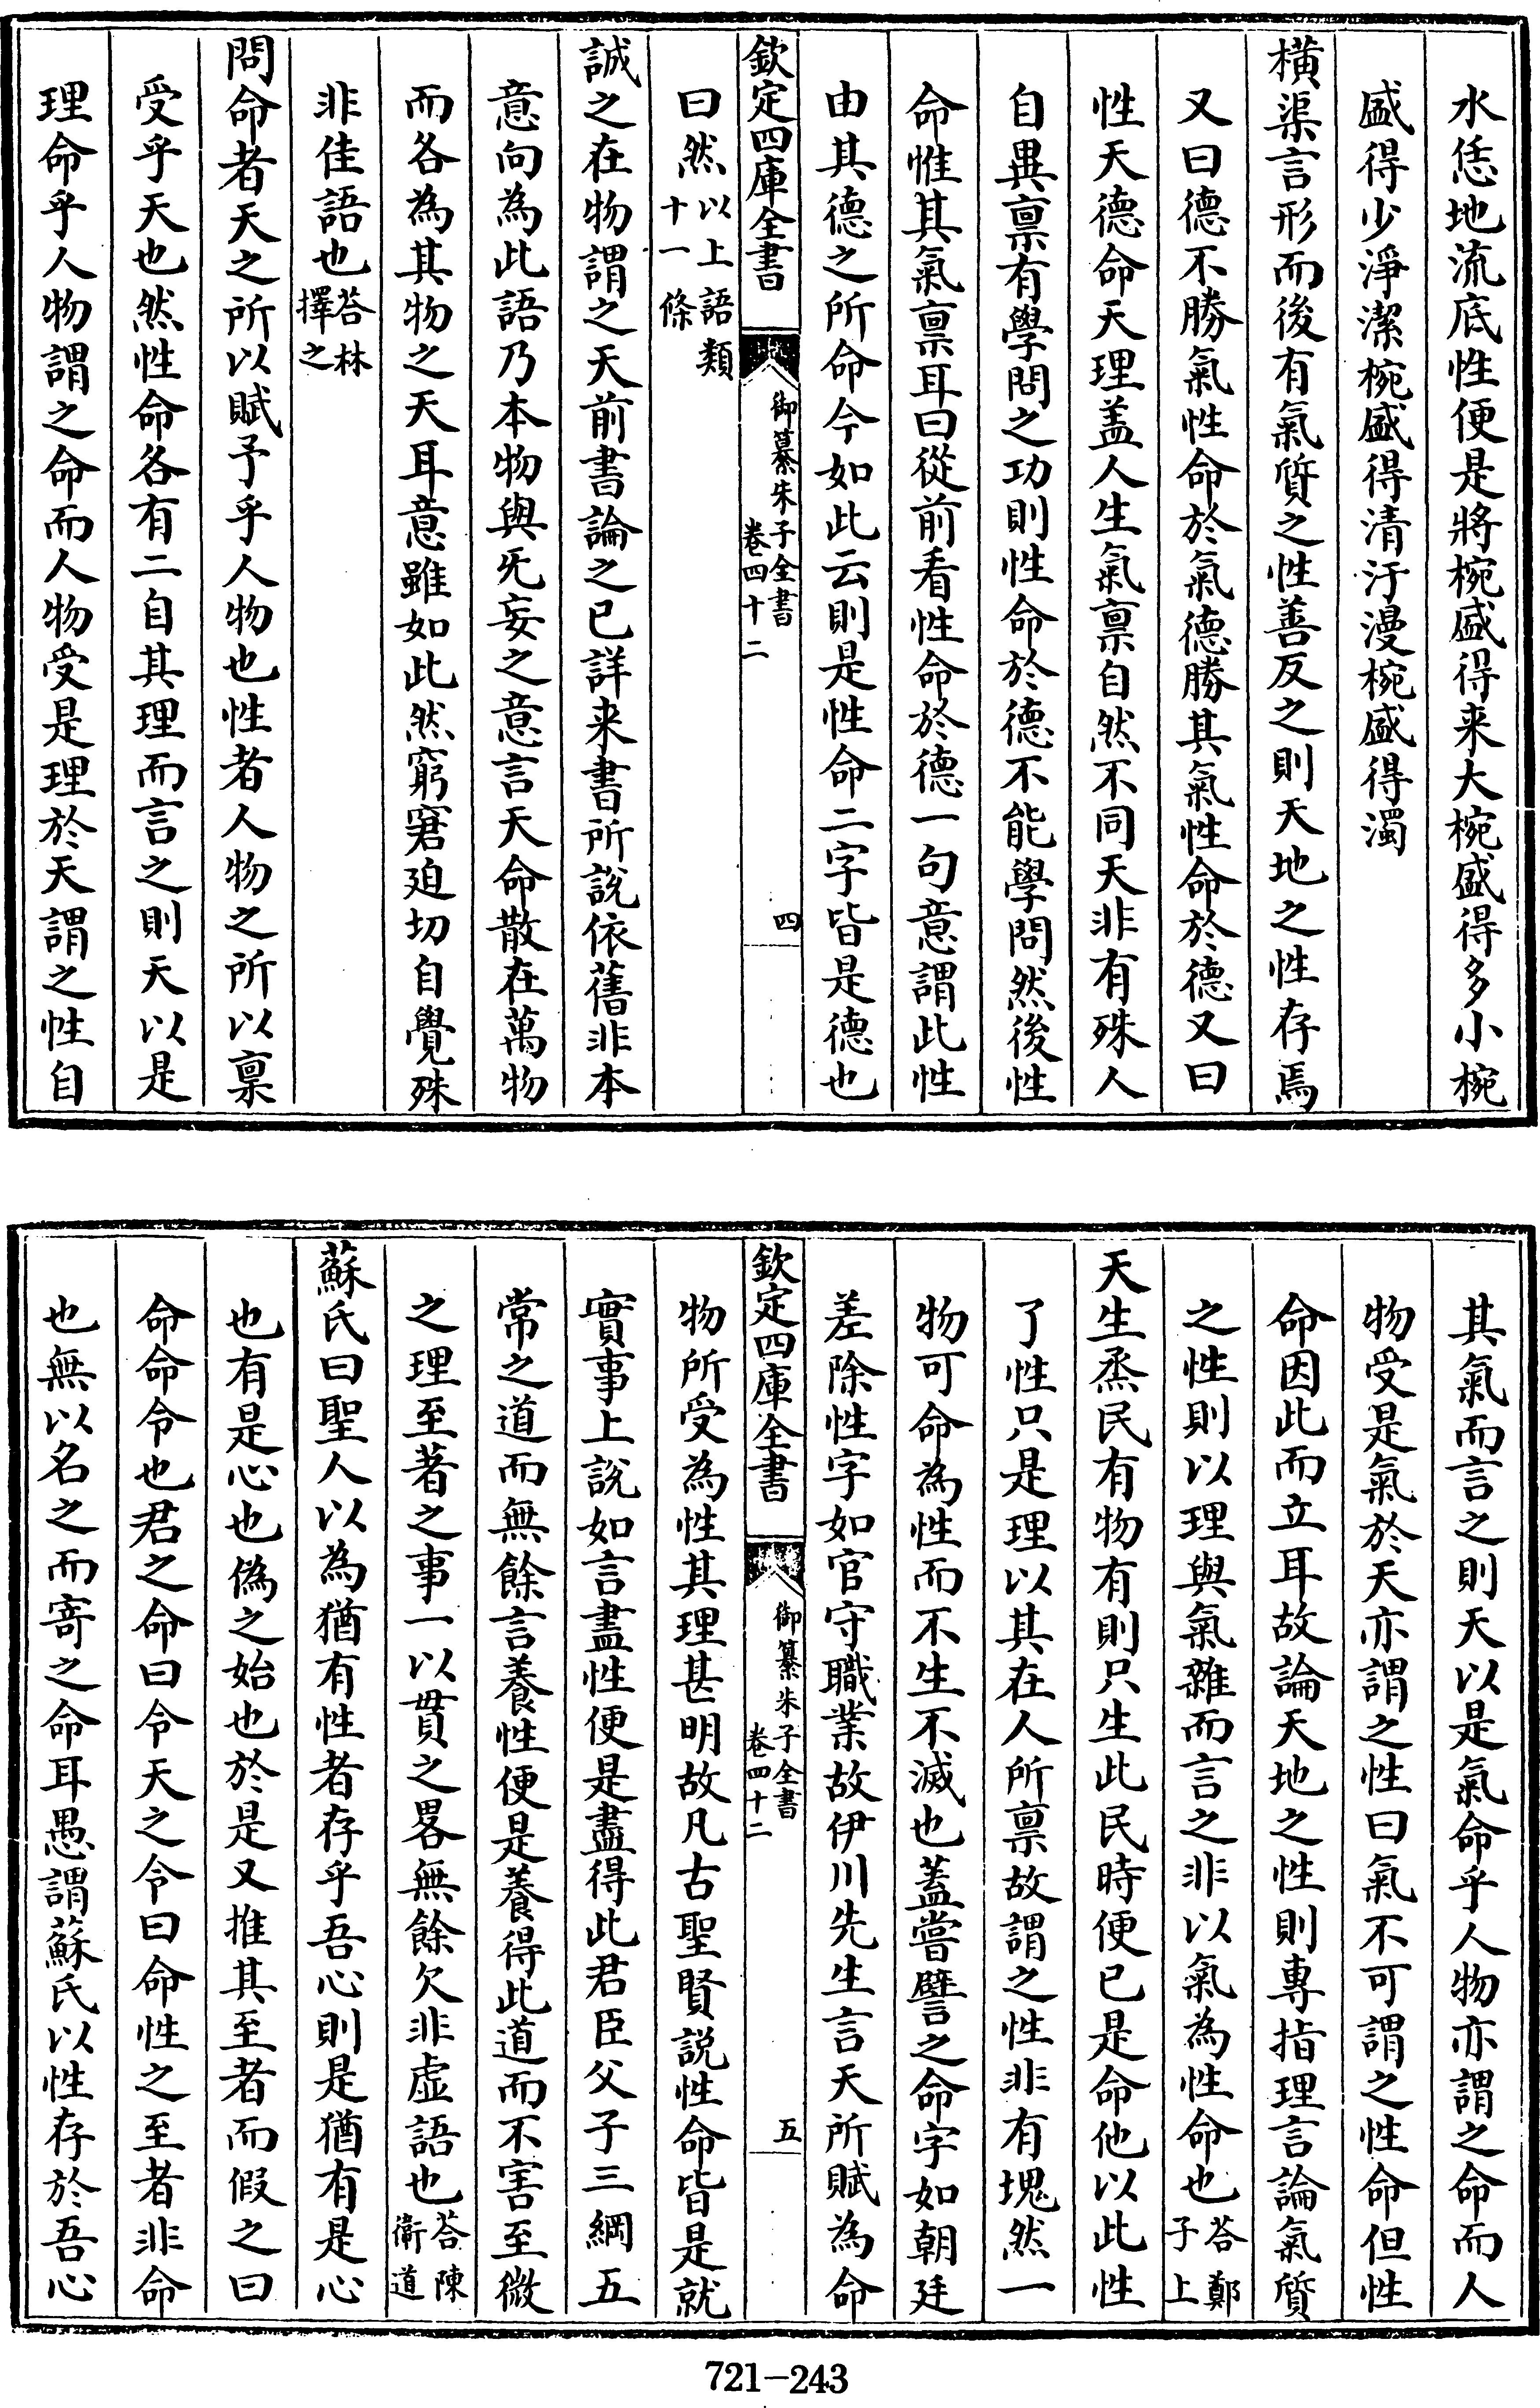 水恁地流底性便是將椀盛得来大椀盛得多小椀
盛得少淨潔椀盛得清汙漫椀盛得濁
橫渠言形而後有氣質之性善反之則天地之性存焉
又曰德不勝氣性命於氣德勝其氣性命於德又曰
性天德命天理盖人生氣禀自然不同天非有殊人
自異禀有學問之功則性命於德不能學問然後性
命惟其氣禀耳曰從前看性命於德一句意謂此性
由其德之所命今如此云則是性命二字皆是德也
欽定四庫全書
御纂朱子全書
卷四十二
四
曰然以上語類
十一條
誠之在物謂之天前書論之已詳来書所說依舊非本
意向為此語乃本物與旡妄之意言天命散在萬物
而各為其物之天耳意雖如此然窮窘廹切自覺殊
非佳語也荅林
擇之
問命者天之所以賦予乎人物也性者人物之所以禀
受乎天也然性命各有二自其理而言之則天以是
理命乎人物謂之命而人物受是理於天謂之性自
其氣而言之則天以是氣命乎人物亦謂之命而人
物受是氣於天亦謂之性曰氣不可謂之性命但性
命因此而立耳故論天地之性則專指理言論氣質
之性則以理與氣雜而言之非以氣為性命也荅鄭
子上
天生烝民有物有則只生此民時便已是命他以此性
了性只是理以其在人所禀故謂之性非有塊然一
物可命為性而不生不滅也蓋嘗譬之命字如朝廷
差除性字如官守職業故伊川先生言天所賦為命
欽定四庫全書
御纂朱子全書
卷四十二
五
物所受為性其理甚明故凡古聖賢説性命皆是就
實事上說如言盡性便是盡得此君臣父子三綱五
常之道而無餘言養性便是養得此道而不害至微
之理至著之事一以貫之畧無餘欠非虛語也荅陳
衛道
蘇氏曰聖人以為猶有性者存乎吾心則是猶有是心
也有是心也偽之始也於是又推其至者而假之曰
命命令也君之命曰令天之令曰命性之至者非命
也無以名之而寄之命耳愚謂蘇氏以性存於吾心
721-243